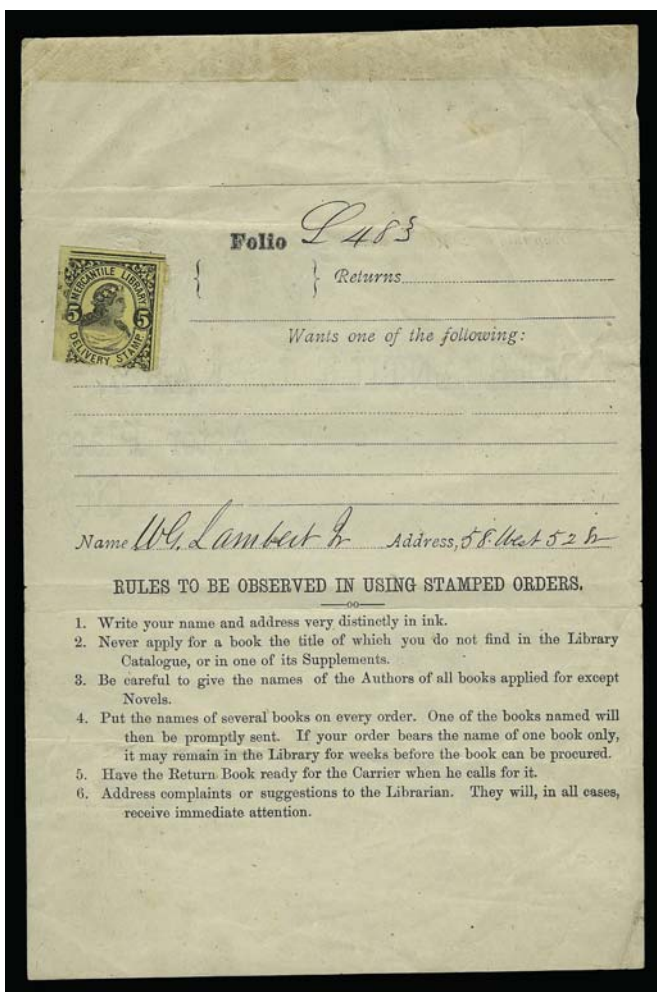 Folio L 483
MERCANTILE LIBRARY
5 5
DELIVERY STAMP
Returns
Wants one of the following:
Name W.G. Lambert Jr Address, 58 West 52
RULES TO BE OBSERVED IN USING STAMPED ORDERS.
1. Write your name and address very distinctly in ink.
2. Never apply for a book the title of which you do not find in the Library
Catalogue, or in one of its Supplements.
3. Be careful to give the names of the Authors of all books applied for except
Novels.
4. Put the names of several books on every order. One of the books named will
then be promptly sent. If your order bears the name of one book only,
it may remain in the Library for weeks before the book can be procured.
5. Have the Return Book ready for the Carrier when he calls for it.
6. Address complaints or suggestions to the Librarian. They will, in all cases,
receive immediate attention.